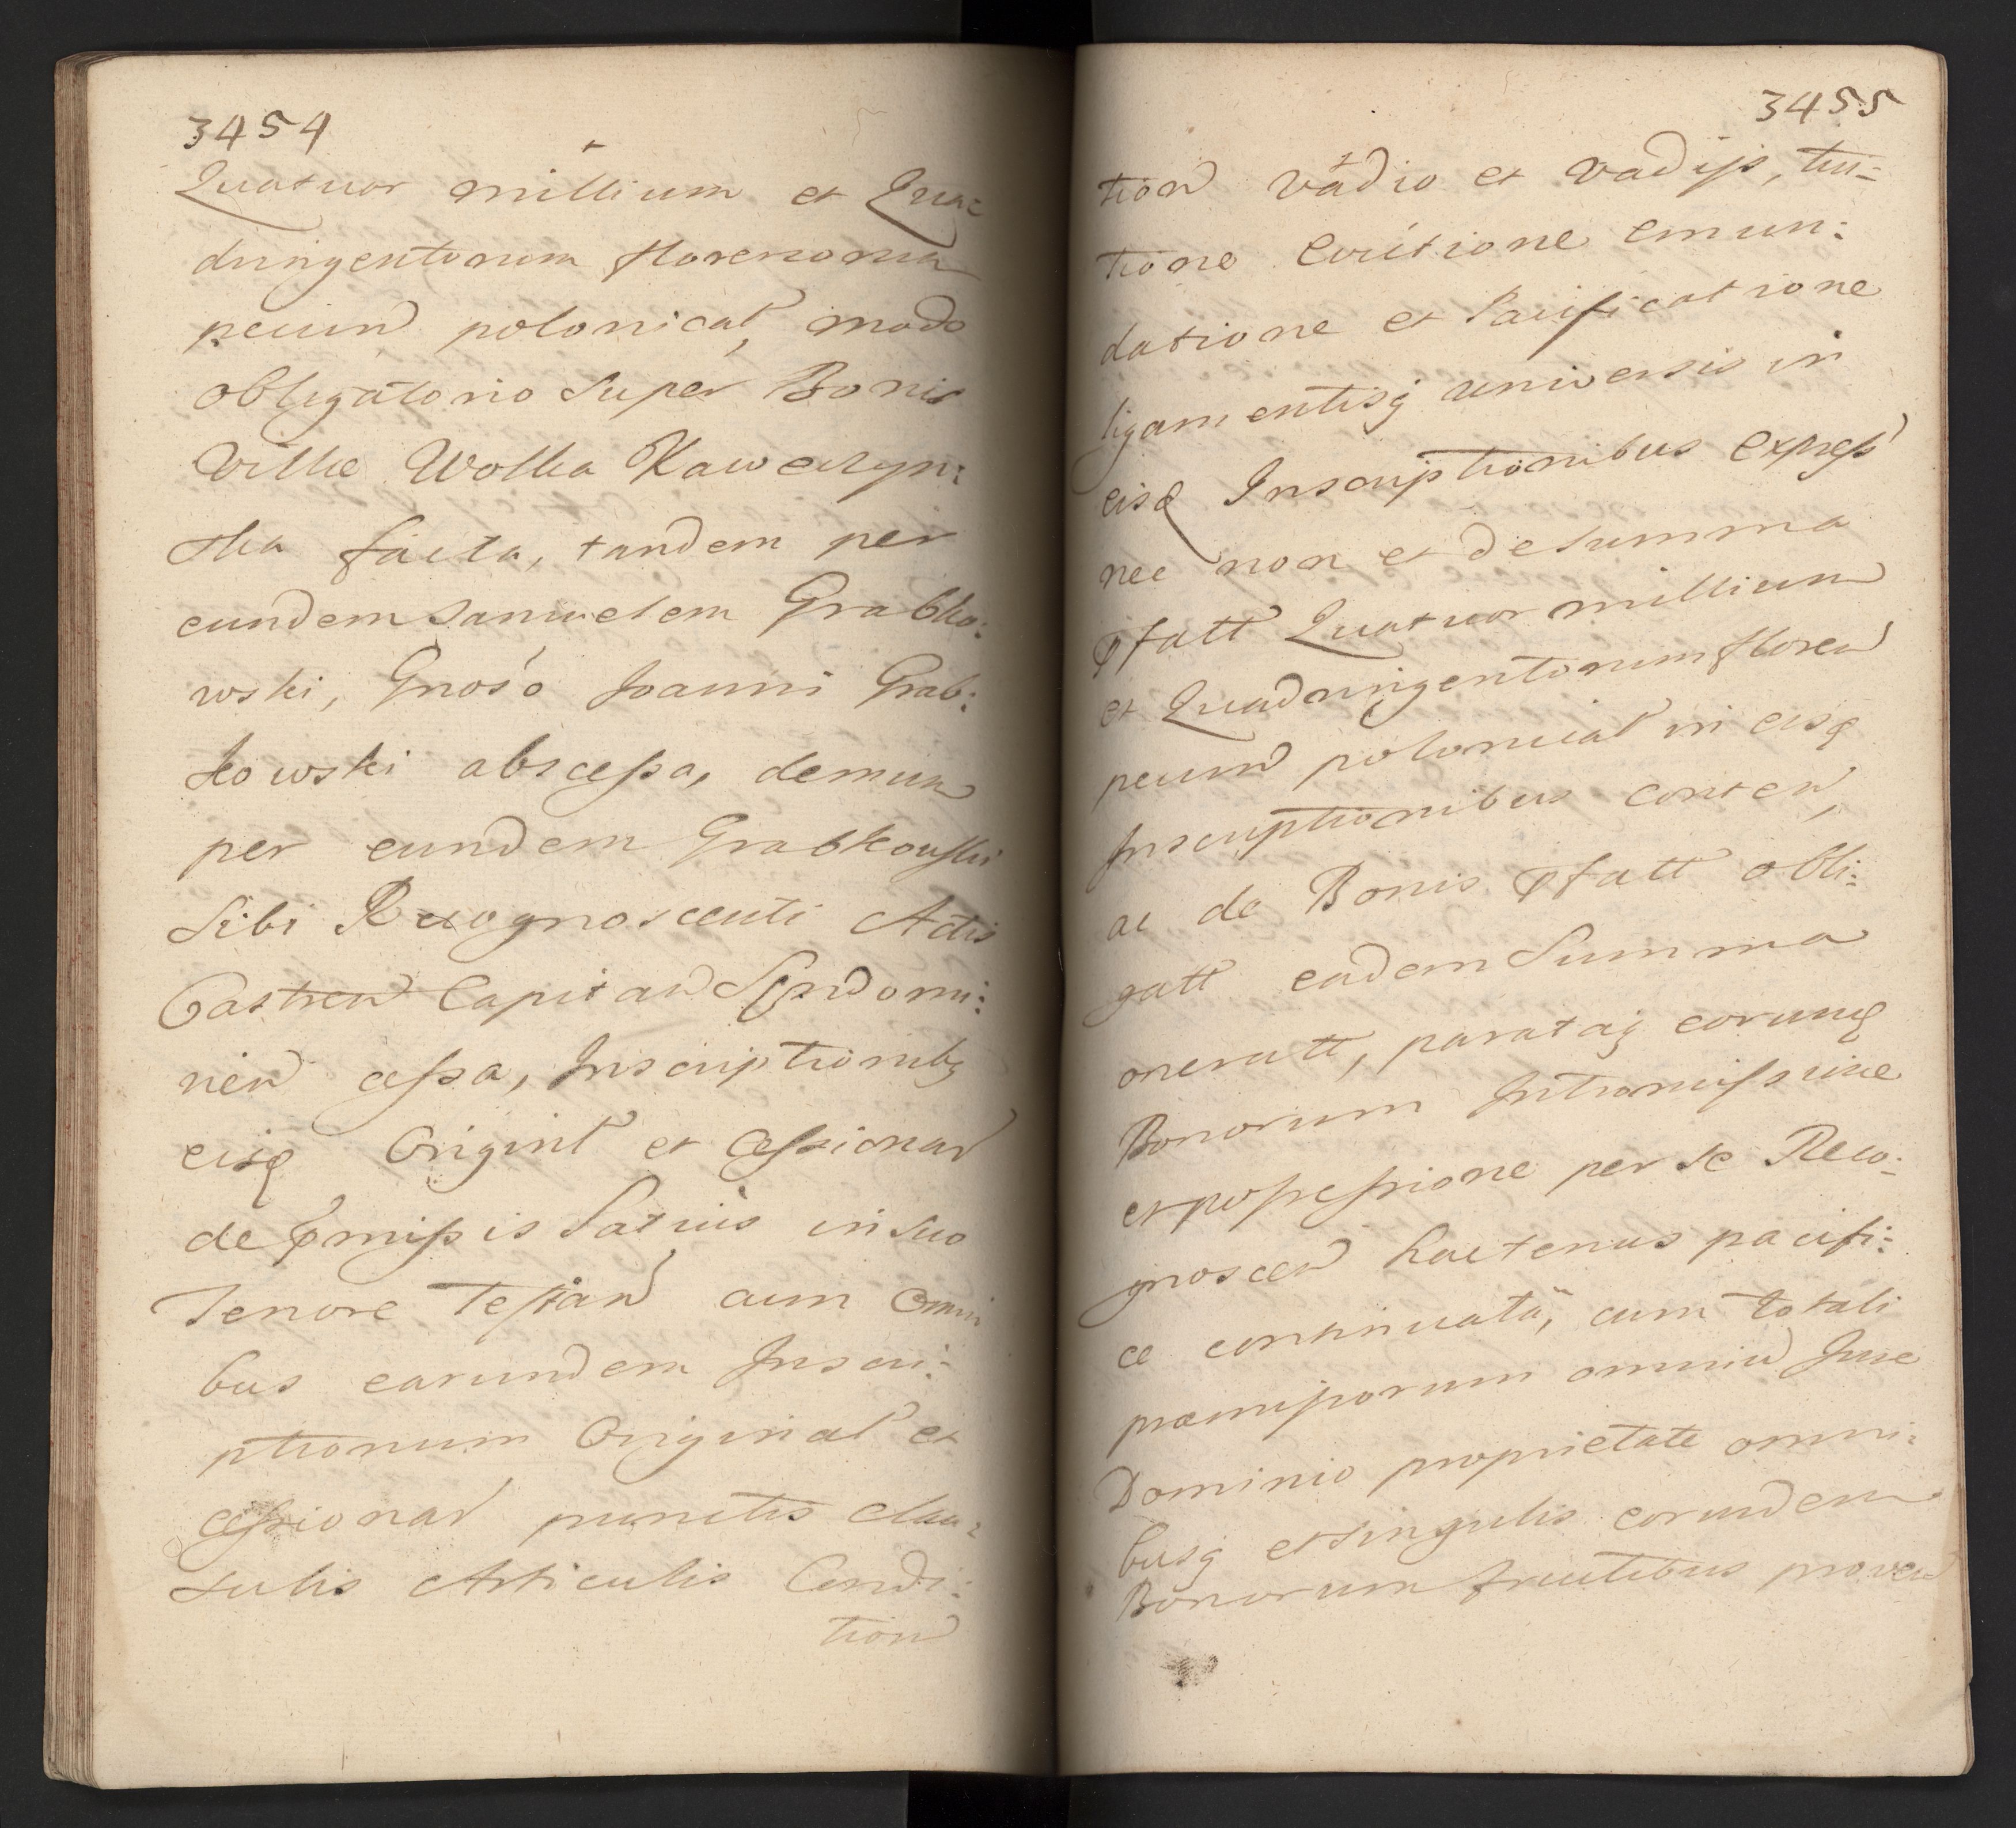 3454
Quatuor millium et Qua=
dringentorum florenorum
pecun polonical, modo
obligatorio Super Bonis
Villae Wolka Kaweczyn:
ska facta, tandem per
eundem Samuelem Grabko:
wski, Gnoso Joanni Grab:
kowski abscessa, demum
per eundem Grabkowski
Sibi Recognoscenti Actis
Castren Capitan Syndomi:
rien cessa, Inscriptionibq
eisq Originl et Cessionar
de pmissis Latius in suo
Tenore Testan cum Omni
bus earundem Inscri:
ptionum Original et
cessionar punctis clau=
sulis Articulis Condi:
tion
3455
tion vadio et vadijs, tui=
tione Evictione emun:
datione et Pacificatione
ligamentisq universis in
eisq Inscriptionibus Express
nec non et de Summa
pfatt Quatuor millium
et Quadringentorum floren
pecun polonical in eisq
Inscriptionibus conten,
ac de Bonis pfatt obli:
gatt eadem Summa
oneratt, parataq eorumq
Bonorum Intromissione
et possessione per se Reco:
gnoscen hactenus pacifi:
ce continuata, cum totali
praemissorum omniu Jure
Dominio proprietate omni=
busq et singulis eorundem
Bonorum fructibus proven